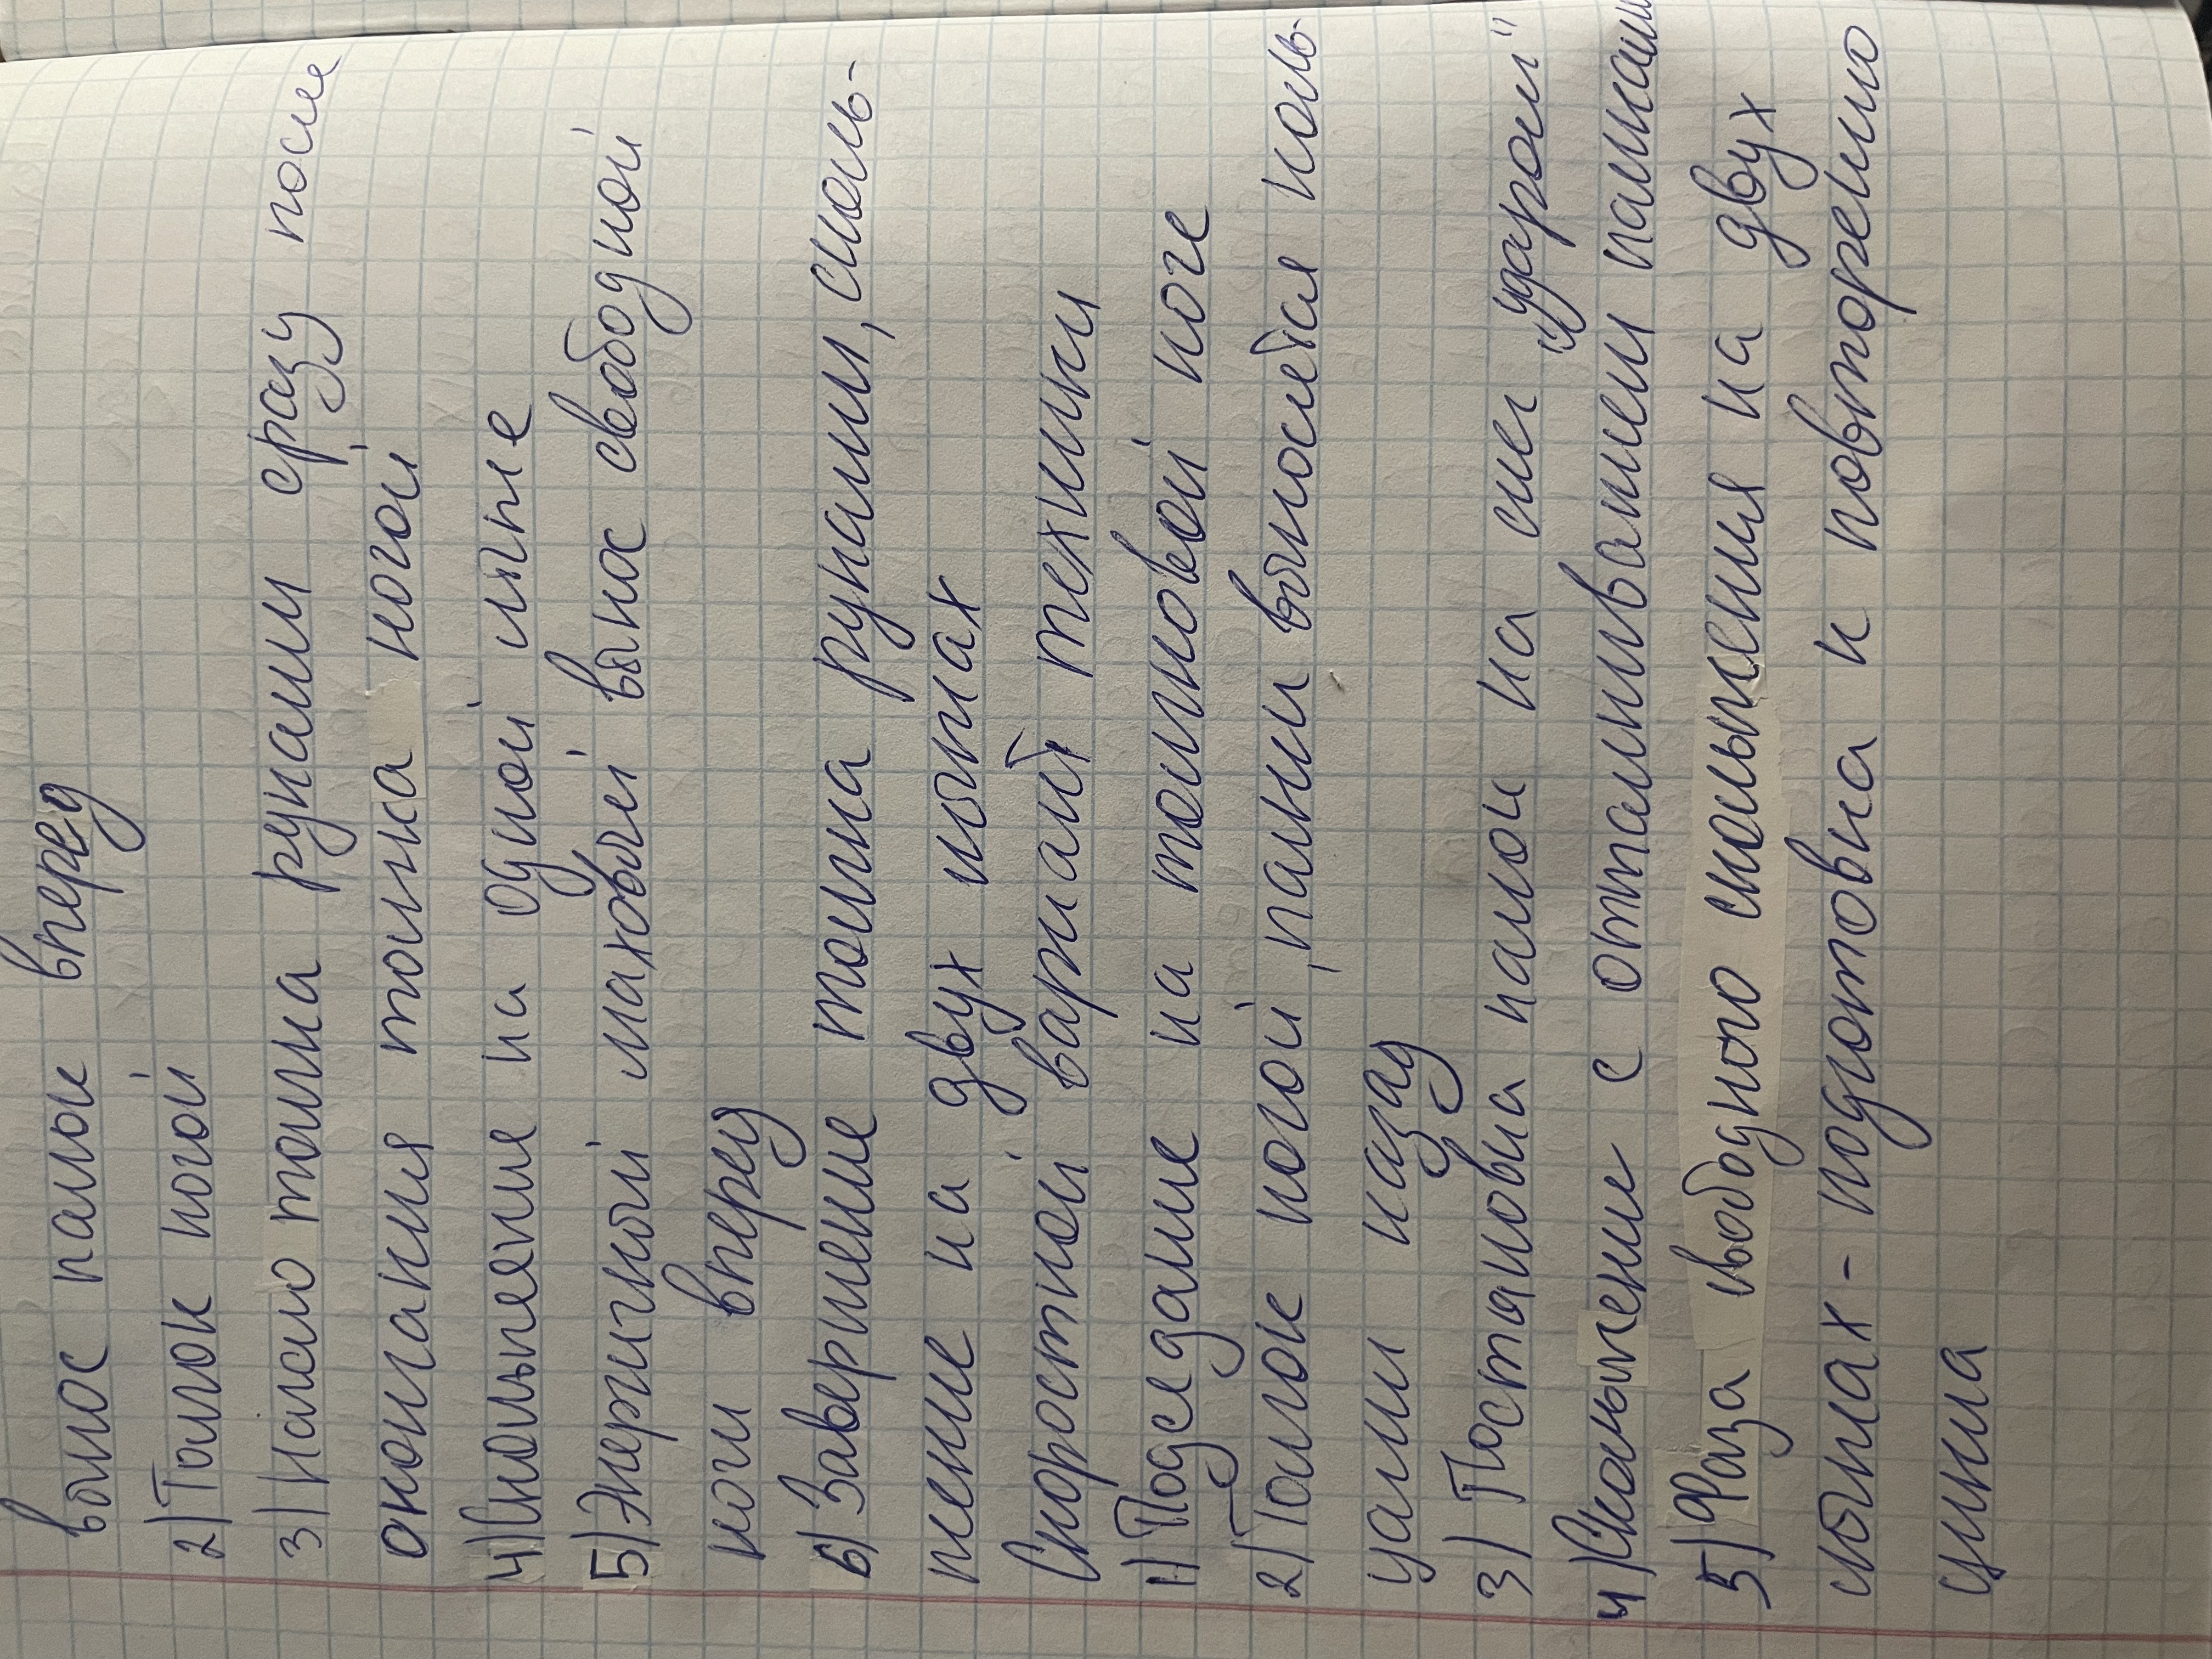 вынос палок вперед
2) Толчок ногой
3) Начало толчка руками сразу после
окончания толчка ногой
4) Скольжение на одной лыже
5) Энергичный маховый вынос свободной
ноги вперед
6) Завершение толчка руками, сколь-
жение на двух лыжах
Скоростной вариант техники
1) Подседание на толчковой ноге
2) Толчок ногой, палки выносятся коль-
цами назад
3) Постановка палок на снег „ударом"
4) Скольжение с отталкиванием палками
5) Фаза свободного скольжения на двух
лыжах - подготовка к повторению
цикла